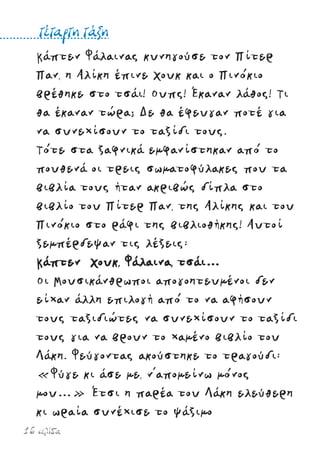 Τέταρτη Τάξη
Κάπτεν Φάλαινας κυνηγούσε τον Πίτερ
Παν, η Αλίκη έπινε Χουκ και ο Πινόκιο
βρέθηκε στο τσάι! Ουπς! Έκαναν λάθος! Τι
θα έκαναν τώρα; Δε θα έφευγαν ποτέ για
να συνεχίσουν το ταξίδι τους.
Τότε στα ξαφνικά εμφανίστηκαν από το
πουθενά οι τρεις σωματοφύλακες που τα
βιβλία τους ήταν ακριβώς δίπλα στο
βιβλίο του Πίτερ Παν, της Αλίκης και του
Πινόκιο στο ράφι της βιβλιοθήκης! Αυτοί
ξεμπέρδεψαν τις λέξεις:
Κάπτεν Χουκ, Φάλαινα, τσάι...
Οι Μουσικάνθρωποι απογοητευμένοι δεν
είχαν άλλη επιλογή από το να αφήσουν
τους ταξιδιώτες να συνεχίσουν το ταξίδι
τους για να βρουν το χαμένο βιβλίο του
Λάκη. Φεύγοντας ακούστηκε το τραγούδι:
«Φύγε κι άσε με, ν'απομείνω μόνος
μου...» Έτσι η παρέα του Λάκη ελεύθερη
κι ωραία συνέχισε το ψάξιμο
16 σελίδα